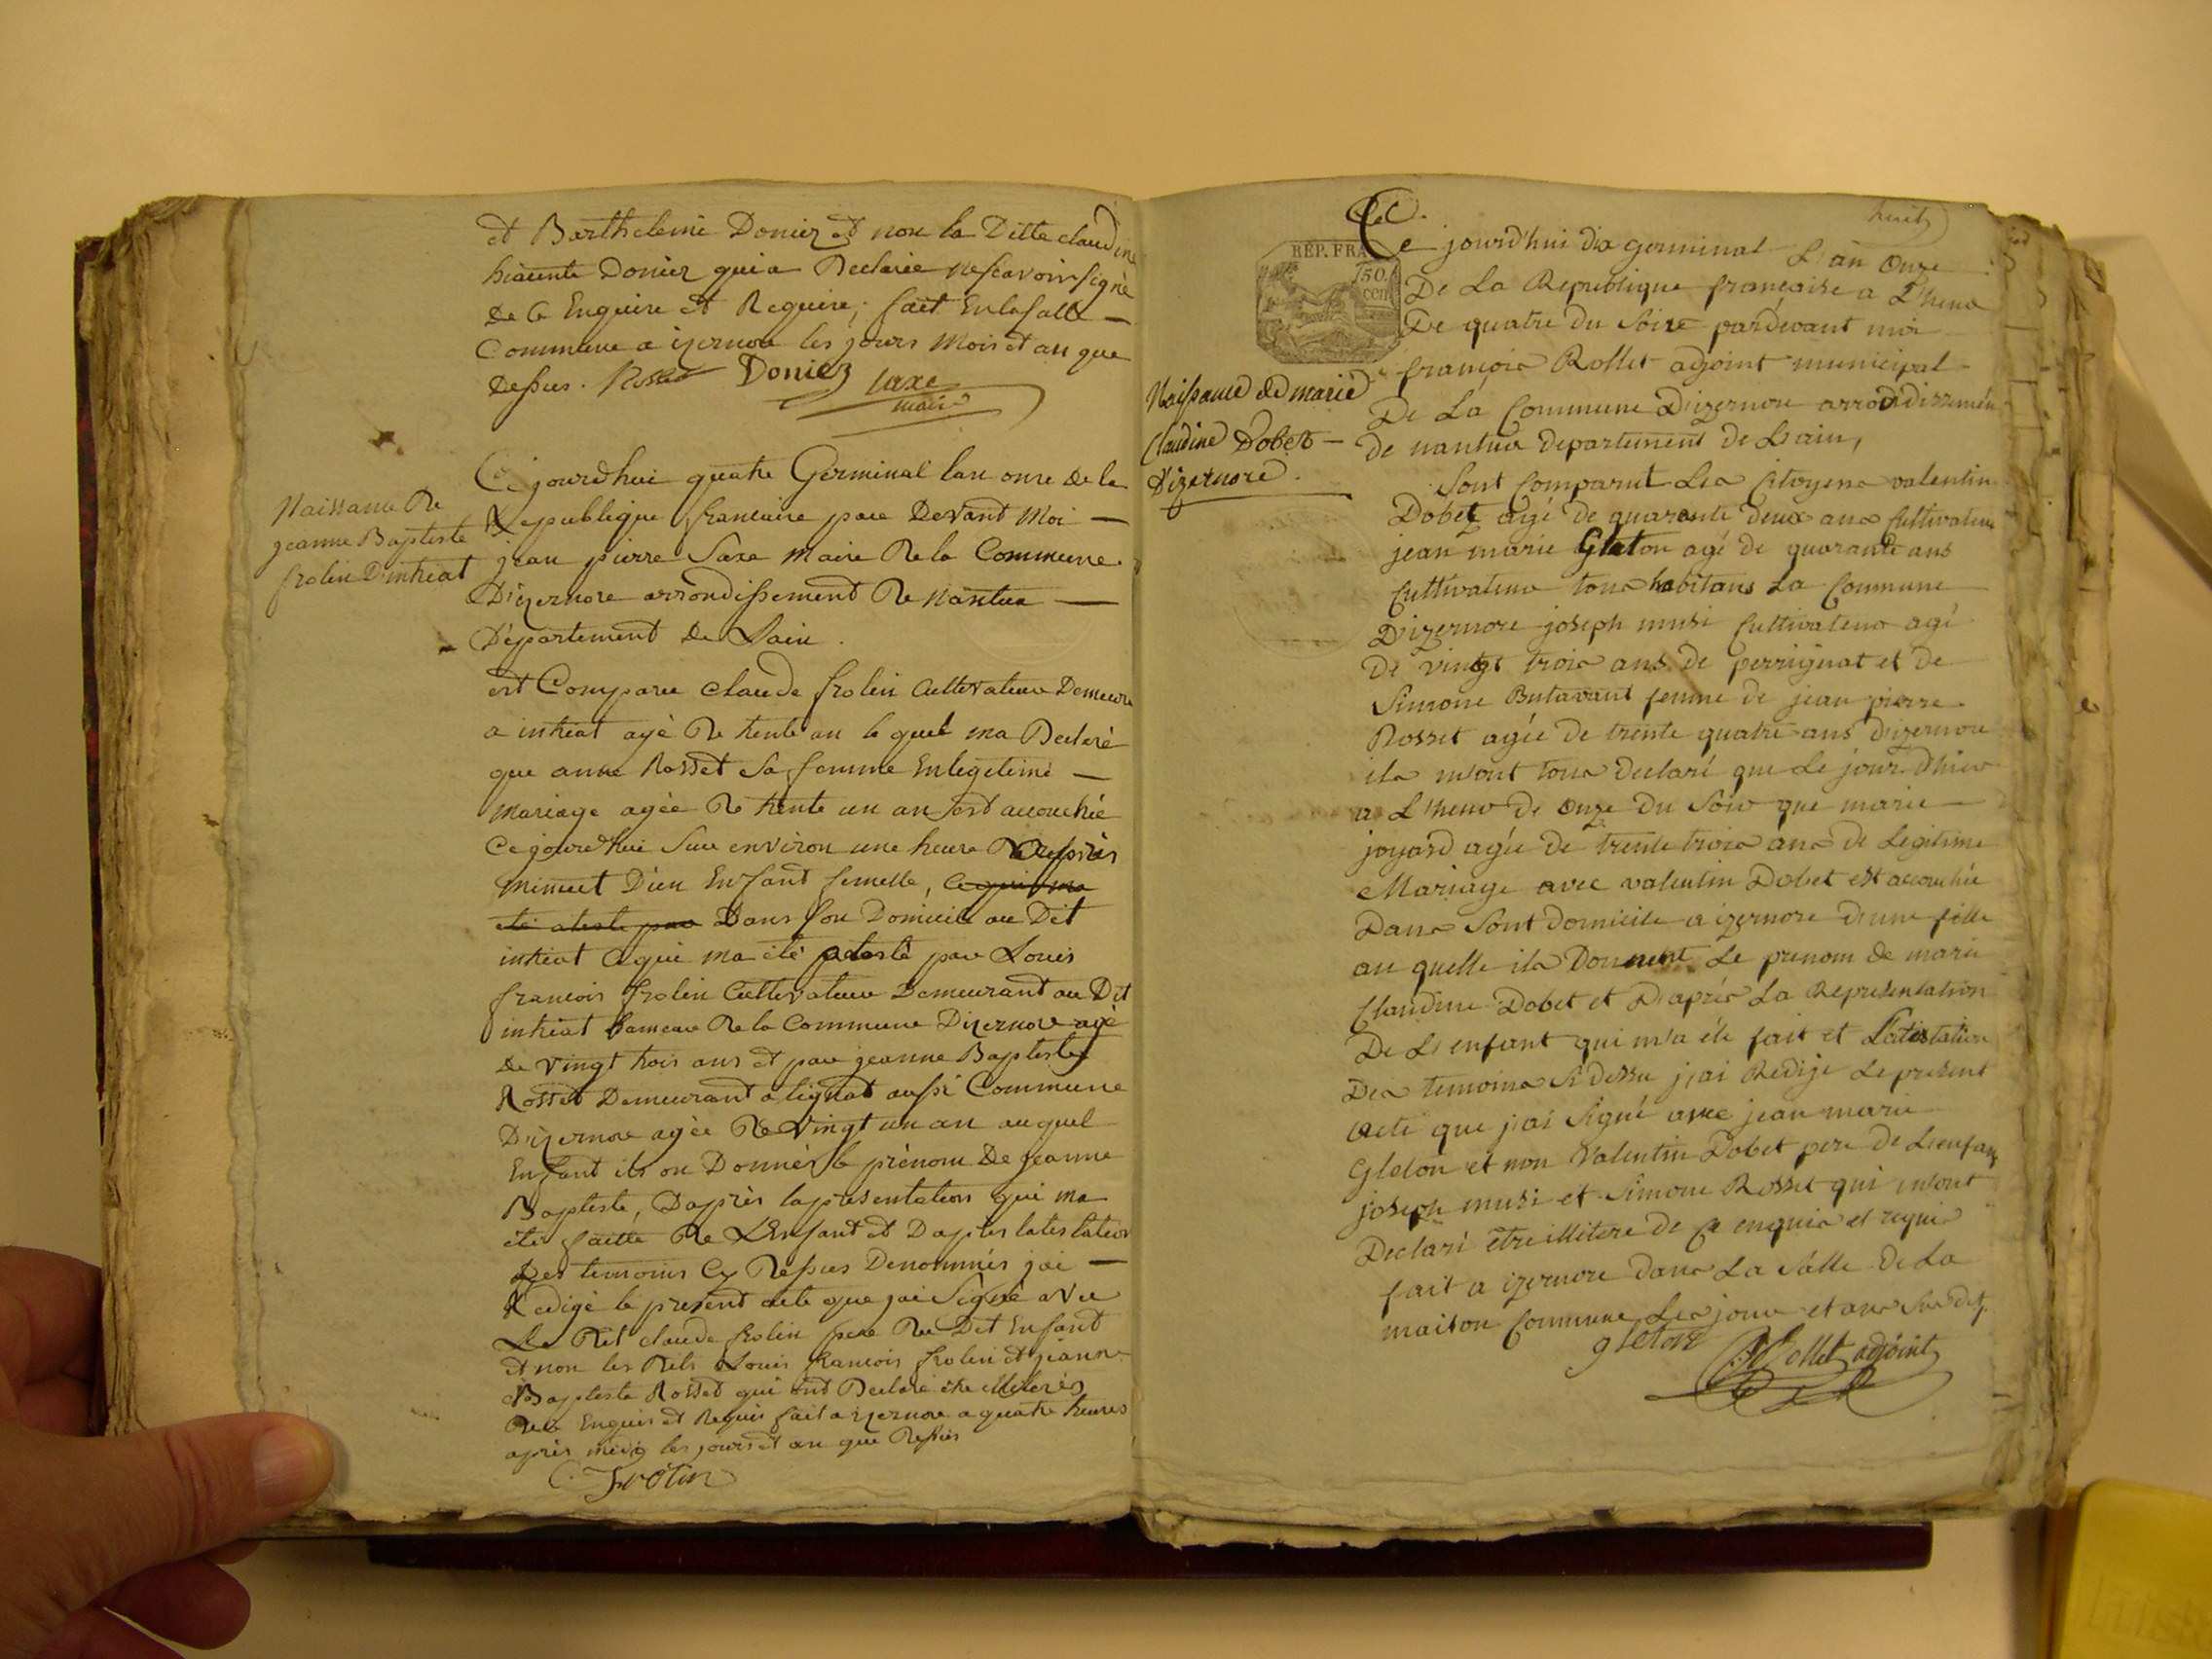 et Barthelemi Doniez et non la Ditte claudine
hiacente Doniez qui a Declarée ne scavoir signé
de ce Enquire et Require, fait En la salle
Commune a izernore les jours mois et an que
dessus. Rosset Doniez Saxe
maire
Naissance De
jeanne Baptiste
frolin D'intriat
Ce jourd'hui quatre Germinal lan onze de la
Republique francaise par Devant Moi
jean pierre Saxe Maire De la Commune
D'izernore arrondissement De Nantua
Département de Lain.
est Comparu claude frolin Cultivateur Demeure
a intriat agé De trente an le quel ma Declaré
que anne Rosset Sa femme En legetime
Mariage agée De trente un an sest accouchée
Ce jourd'hui Sur environ une heure De apsrès
minuet D'un Enfant femelle, Ce qui ma
eté atesté par Dans son Domicile au Dit
intriat Ce qui ma été atesté par Louis
francois frolin Cultivateur Demeurant au Dit
intriat hameau De la Commune D'izernore agé
de vingt trois ans et par jeanne Baptiste
Rosset Demeurant a lignat aussi Commune
D'izernore agée De Vingt un an auquel
Enfant ils on Donnés le prénom De Jeanne
Baptiste, Daprès la presentation qui ma
été faitte De L'Enfant et Daprès latestation
Des temoins Cy Dessus Denommés jai
Redigé le present acte que jai Signé avec
Le Dit claude frolin pere Du Dit Enfant
et non les Dits Louis francois frolin et jeanne
Baptiste Rosset qui ont Declaré être illiterés
De ce Enquis et Requis fait a izernore a quatre heures
après midy les jours et an que Dessus
C. Frolin
huit
REP. FRA
50
cen
Naissance de marie
Claudine Dobet
D'izernore.
Ce jourd'hui dix germinal L'an Onze
De La Republique française a L'heur
De quatre du Soire pardevant moi
françois Rollet adjoint municipal
De La Commune D'izernore arrondissmen
de nantua departement De Lain,
Sont Comparut Les Citoyens valentin
Dobet agé de quarante deux ans Cultivateur
jean marie Gleton agé de quarante ans
Cultivateur tous habitans La Commune
D'izernore joseph musi Cultivateur agé
De vingt trois ans de perrignat et de
Simone Butavant femme de jean pierre
Rosset agée de trente quatre ans d'izernore
ils m'ont tous declaré que Le jour D'hier
a L'heur de Onze du Soir que marie
joyard agée de trente trois ans de Legitime
Mariage avec valentin Dobet est accouchée
Dans Sont domicile a izernore d'une fille
au quelle ils Donnent Le prenom de marie
Claudine Dobet et D'après La Representation
De L'enfant qui m'a été fait et L'atestation
Des temoins Si dessu j'ai Redigé Le present
acte que j'ai Signé avec jean marie
Gleton et non Valentin Dobet pere de L'enfan
joseph musi et Simone Rosset qui m'ont
Declaré être illitere de Ce enquis et requis
fait a izernore dans La Salle De La
maison Commune Les jour et ans Susdit
gleton Rollet adjoint